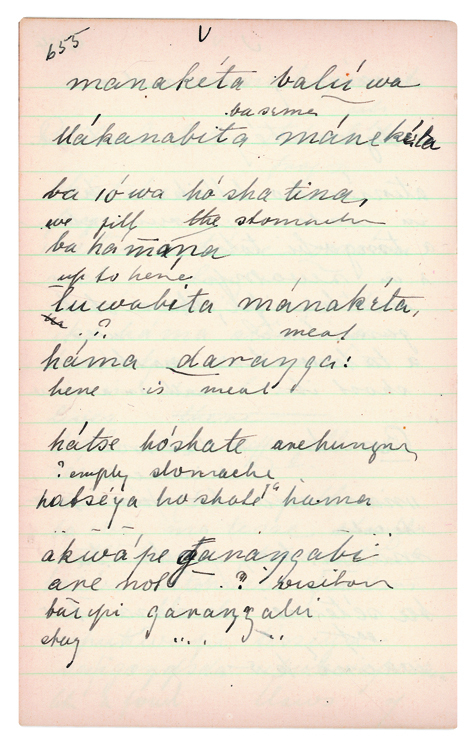 655 V
manakéta balúwa
baseme
llákanabita mánekéta
ba íówa hóshatina,
we fill the stomach
ba hāmāna
up to here
luwabita mánakéta,
..? meat
háma daranga:
here is meat
hátse hóshate are hungry
? empty stomache
hatséya hoshate hama
akwápe garangabi
are not ? visitor
báipi garangabi
stay